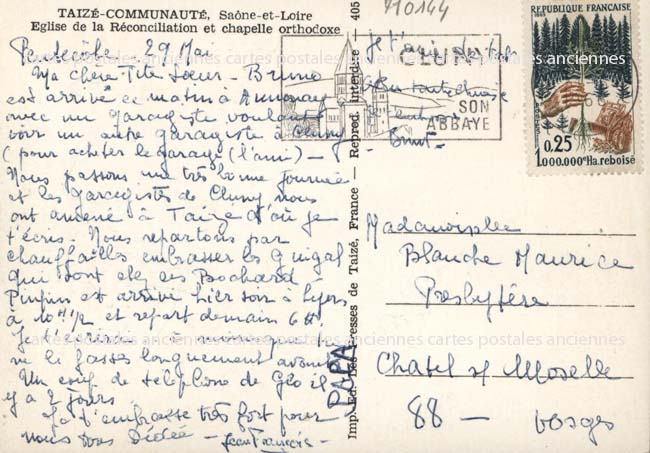 TAIZÉ-COMMUNAUTÉ, Saône-et-Loire
Eglise de la Réconciliation et chapelle orthodoxe
Pentecôte 29 Mai
Ma chère Tite Soeur - Bruno
est arrivé ce matin à Annonay
avec un garagiste voulant
voir un autre garagiste à Cluny
(pour acheter le garage (l'ami) -
Nous passons une très bonne journée
et les garagistes de Cluny nous
ont amené à Taizé d'où je
t'écris. Nous repartons par
Chauffailles embrasser les Guigal
qui sont chez les Bochard
Pinpin est arrivé hier soir à Lyon
à 10H 1/2 et repart demain 6H
Je t'écrirai
ne le fasses longuement avant
Un coup de téléphone de Glo il
y a 2 jours
Je t'embrasse très fort pour
nous tous Dédée - Jean François -
PAPA
Imp. Ed. Les Presses de Taizé, France — Reprod. interdite 405
710144
CLUNY
SON
ABBAYE
Je t'
Bruno
REPUBLIQUE FRANÇAISE
1965
0,25
1.000.000e Ha. reboisé
Mademoiselle
Blanche Maurice
Presbytère
Chatel s/ Moselle
88 - Vosges
cartes postales anciennes cartes postales anciennes cartes postales anciennes
cartes postales anciennes cartes postales anciennes cartes postales anciennes